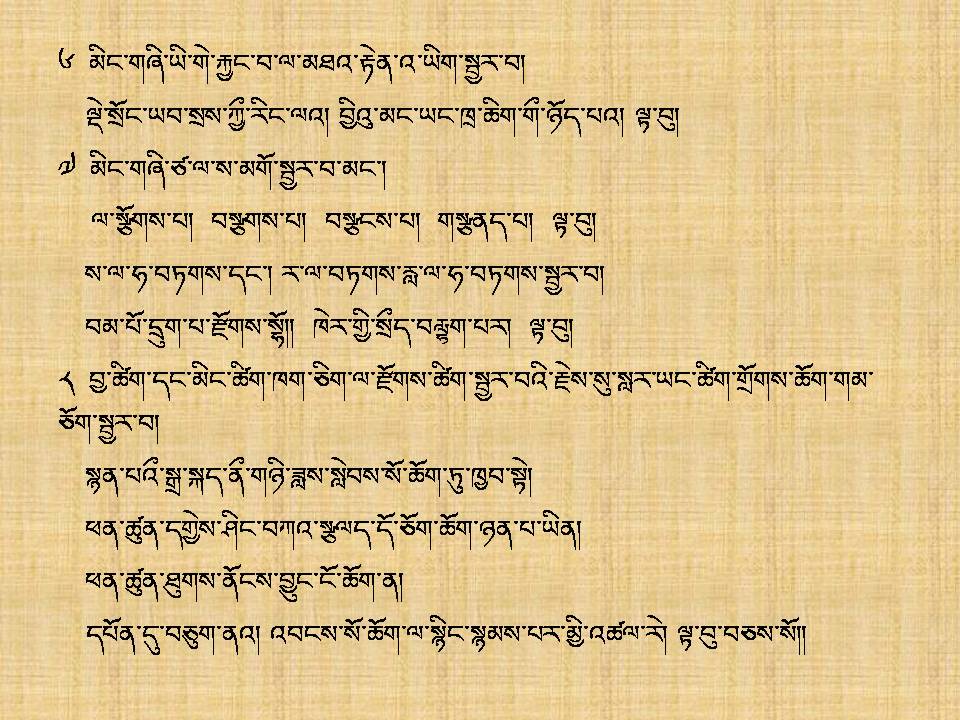 ༦ མིང་གཞི་ཡི་གེ་རྐྱང་བ་ལ་མཐའ་རྟེན་འ་ཡིག་སྦྱར་བ།
ལྡེ་སྲོང་ཡབ་སྲས་ཀྱྀ་རིང་ལའ། བྱིའུ་མང་ཡང་ཁྲ་ཆིག་གྀ་ཉོད་པའ། ལྟ་བུ།
༧ མིང་གཞི་ཙ་ལ་ས་མགོ་སྦྱར་བ་མང་།
ལ་སྩོགས་པ། བསྩགས་པ། བསྩངས་པ། གསྩནད་པ། ལྟ་བུ།
ས་ལ་ཧ་བཏགས་དང་། ར་ལ་བཏགས་རླ་ལ་ཧ་བཏགས་སྦྱར་བ།
བམ་པོ་དྲུག་པ་རྫོགས་སྷོ།། ཁེར་གྱི་སྲྀད་བལྷག་པར། ལྟ་བུ།
༨ བྱ་ཚིག་དང་མིང་ཚིག་ཁག་ཅིག་ལ་རྫོགས་ཚིག་སྦྱར་བའི་རྗེས་སུ་སླར་ཡང་ཚིག་གྲོགས་ཆོག་གམ་
ཅོག་སྦྱར་བ།
སྙན་པའྀ་སྒྲ་སྐད་ནྀ་གཉི་ཟླས་སླེབས་སོ་ཆོག་ཏུ་ཁྱབ་སྟེ།
ཕན་ཚུན་དགྱེས་ཤིང་བཀའ་སྩལད་དོ་ཅོག་ཆོག་ཉན་པ་ཡིན།
ཕན་ཚུན་ཐུགས་ནོངས་བྱུང་ངོ་ཆོག་ན།
དཔོན་དུ་བཅུག་ནའ། འབངས་སོ་ཆོག་ལ་སྙིང་སྙམས་པར་མྱི་འཚལ་རེ། ལྟ་བུ་བཅས་སོ།།